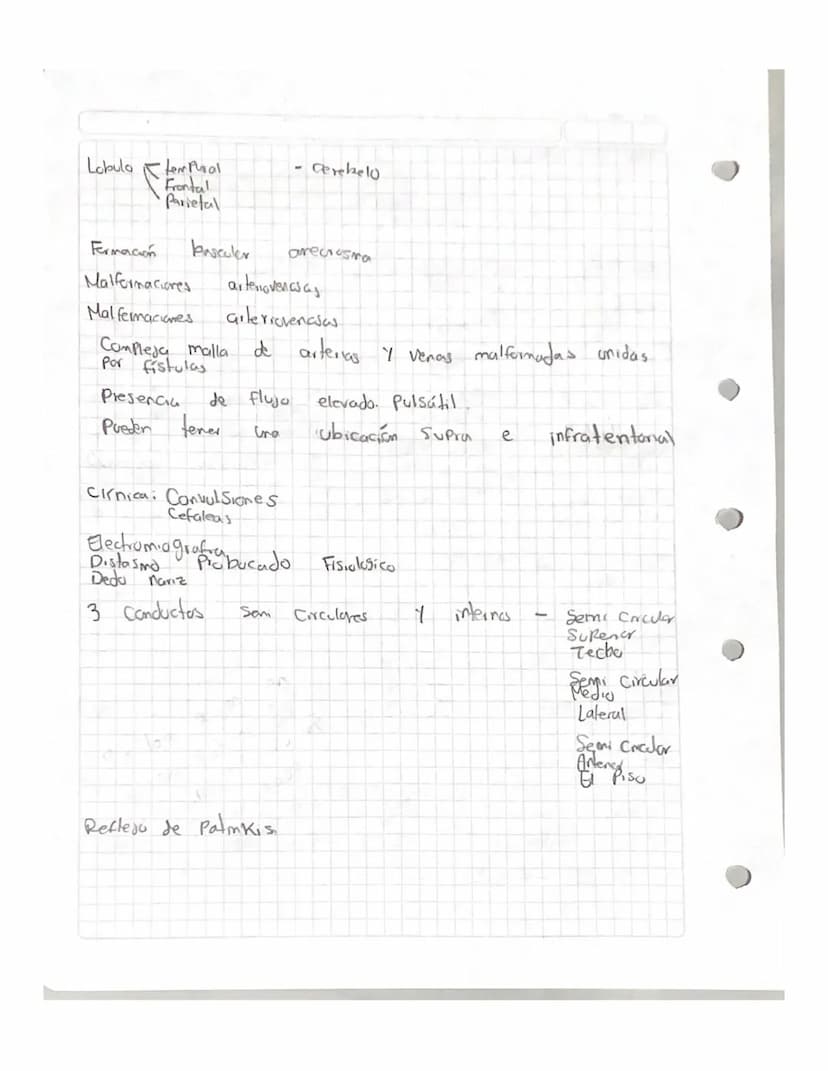 Lobulo temporal - Cerebelo
Frontal
Parietal
Formación vascular
Malformaciones arteriovenosas
Malformaciones arteriovenosas
Compleja malla de arterias y venas malformadas unidas
por fístulas
Presencia de flujo elevado. Pulsátil.
Pueden tener una ubicación supra e infratentorial
Clínica: Convulsiones
Cefaleas
Electromiografia
Fisiologico
Dedo nariz
3 Conductos Semi Circulares y internos - Semi Circular
Superior
Techo
Semi Circular
Medio
Lateral
Semi Circular
El Piso
Reflejo de